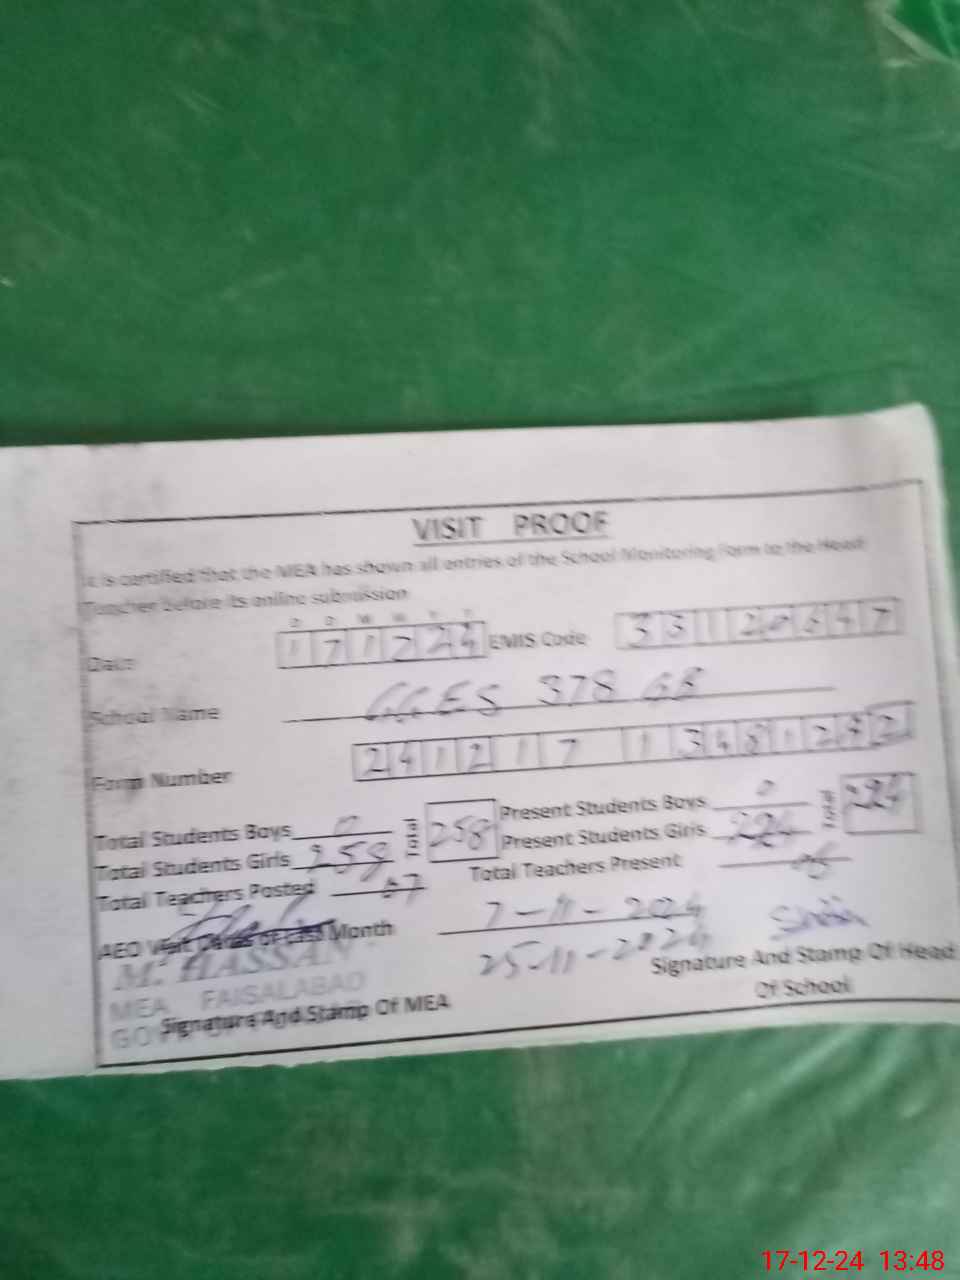 VISIT PROOF
It is certified that the MEA has shown all entries of the School Monitoring Form to the Head
Teacher before its online submission
D D M M Y Y
Date 171224 EMIS Code 33120647
School Name GGES 378 GB
Form Number 2412171348124
Total Students Boys 0 Total 258 Present Students Boys 0 Total 224
Total Students Girls 258 Present Students Girls 224
Total Teachers Posted 07 Total Teachers Present
AEO Visit Dates of Last Month 7-11-2024
25-11-2024
M. HASSAN
MEA FAISALABAD
Signature And Stamp Of MEA
Signature And Stamp Of Head
Of School
17-12-24 13:48